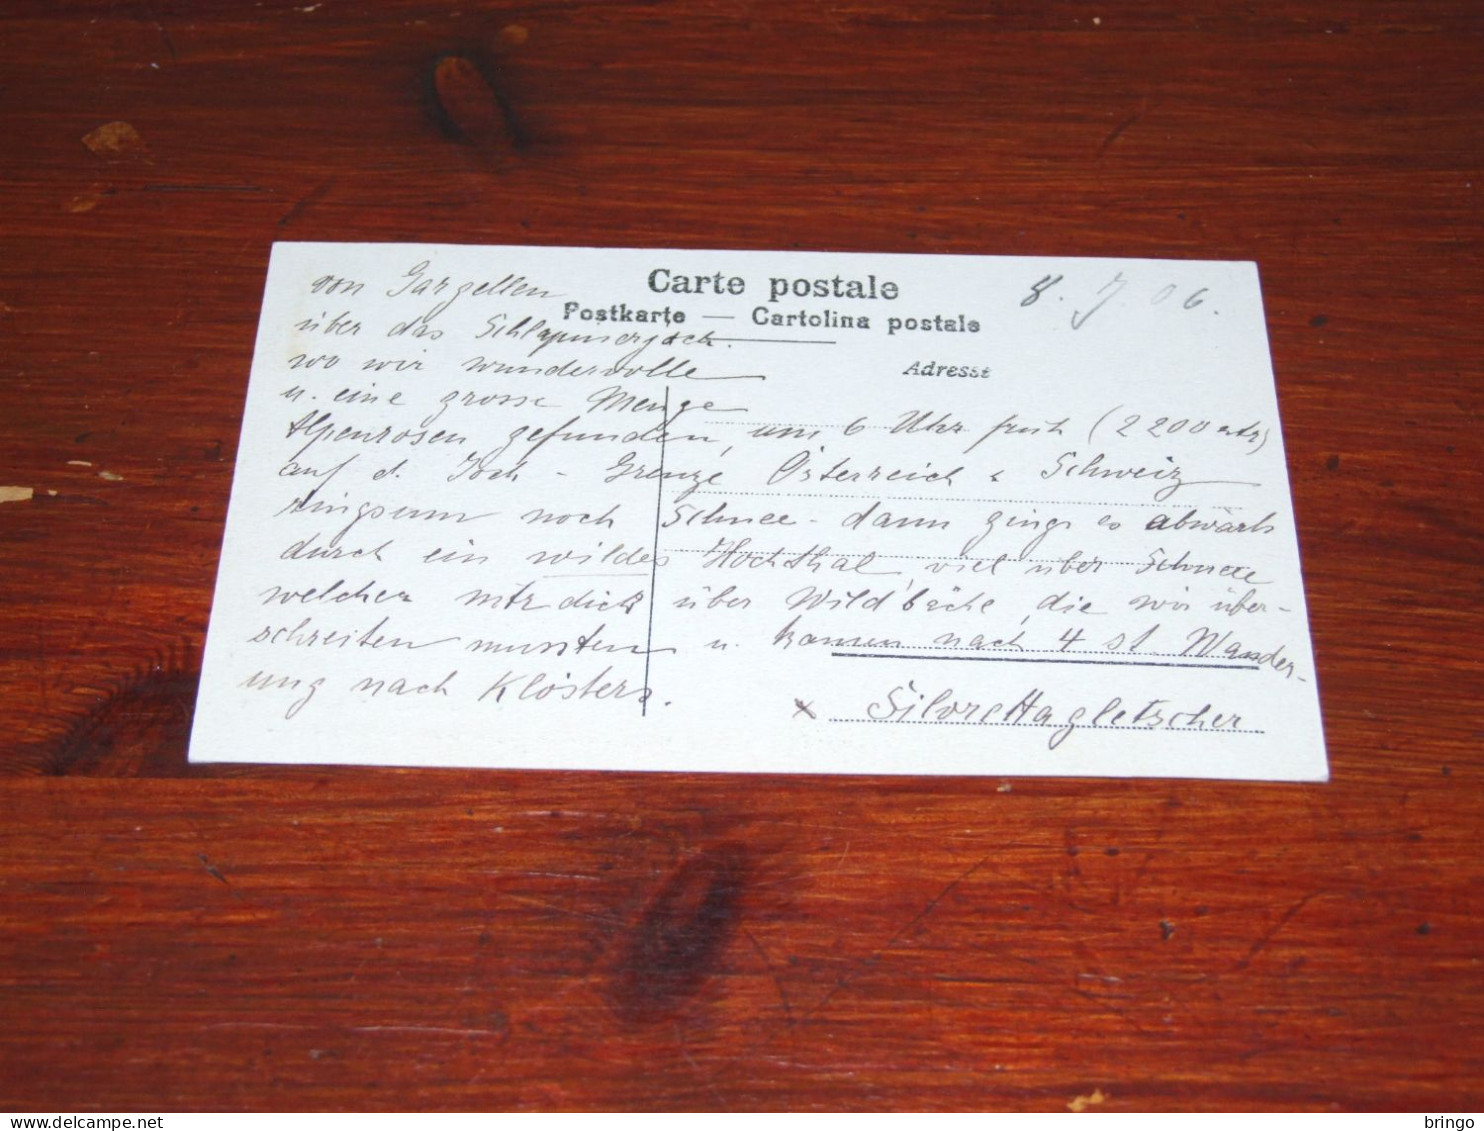 Carte postale
Postkarte — Cartolina postale
Adresse
8. 7. 06.
von Gargellen
über das Schlapinerjoch.
wo wir wundervolle
u. eine grosse Menge
Alpenrosen gefunden, um 6 Uhr früh (2200 mtr)
auf d. Joch - Grenze Österreich & Schweiz
ringsum noch Schnee - dann gings es abwärts
durch ein wildes Hochthal, viel über Schnee
welcher mtr dick über Wildbäche, die wir über-
schreiten mussten u. kamen nach 4 st. Wander-
ung nach Klosters.
x Silvrettagletscher
bringo